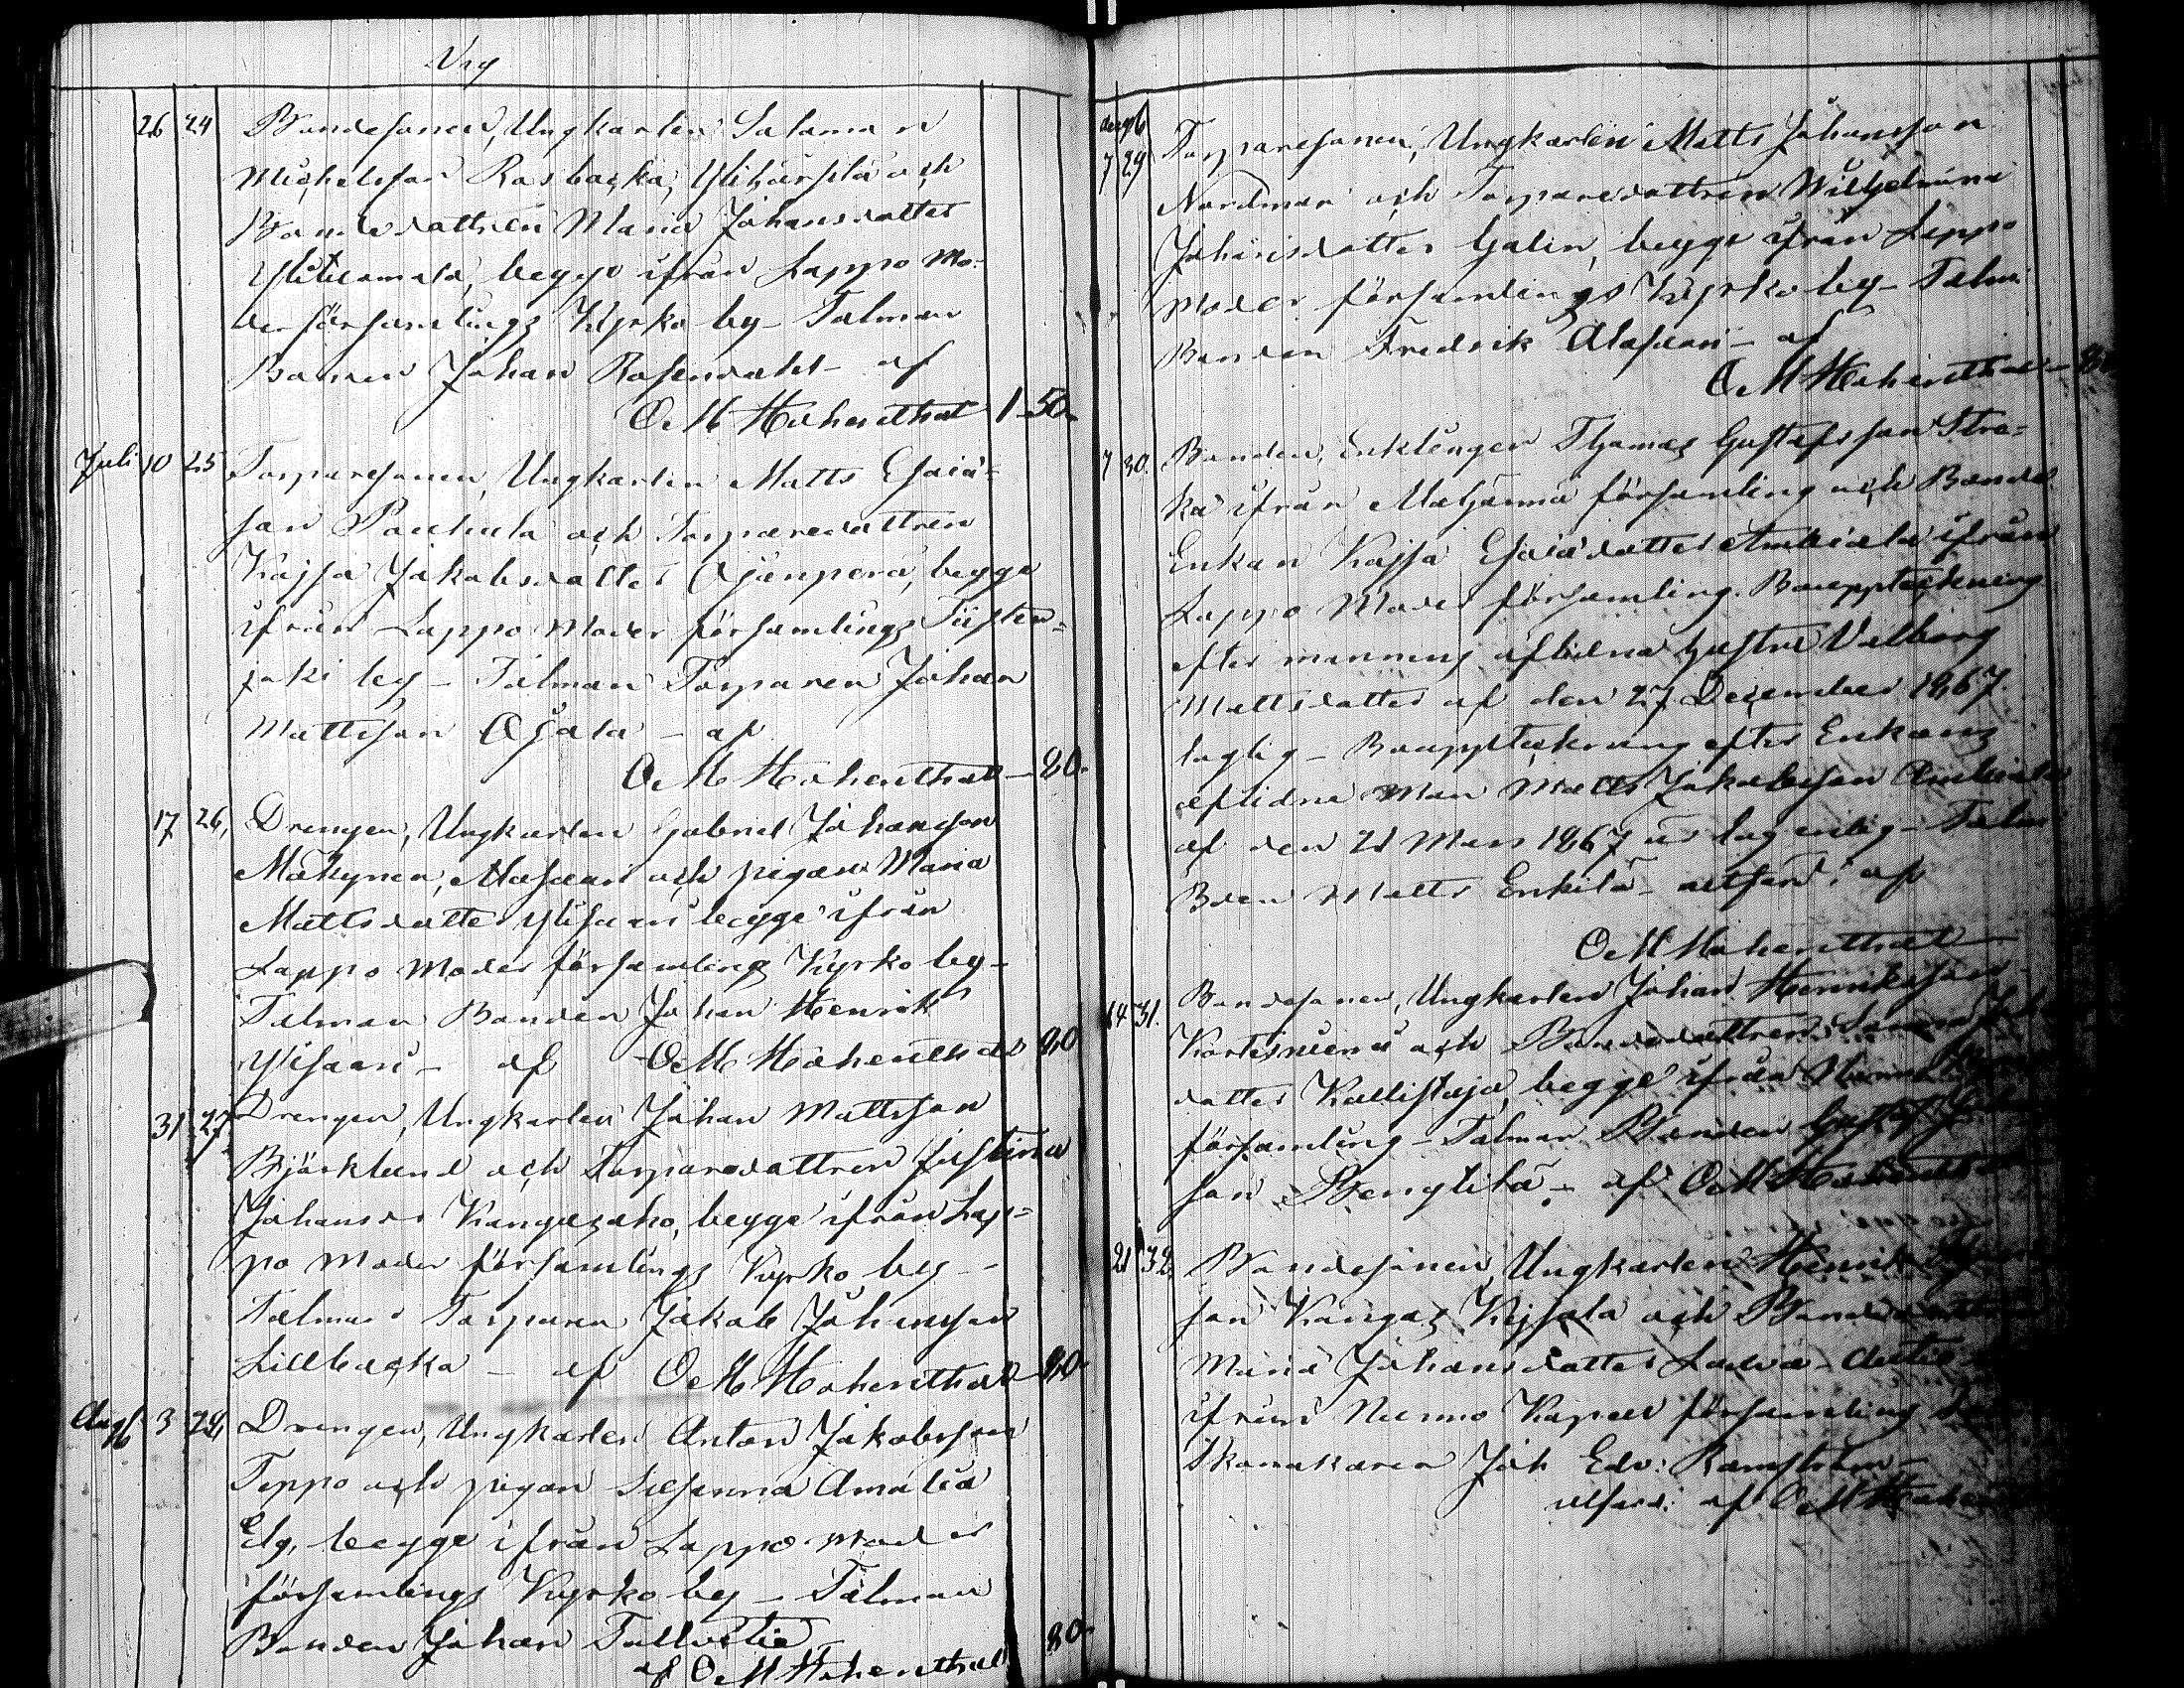 26 24 Bondesonen, Ungkarlen Saloma n
Michelsson Rasbacka, Ylihärsilä och
Bondedottren Maria Johansdotter
Ylitiamala, begge ifrån Lappo Mo-
der församlings Kyrko by - Talman
Bonden Johan Rosendahl - af
O M Hohenthal 1 - 50 -
Juli 10 25 Torparesonen, Ungkarlen Matts Esaiä-
son Pouhula och Torparedottren
Kajsa Jakobsdotter Ojanperä, begge
ifrån Lappo Moder församlings Tiisten=
joki by - Talman Torparen Johan
Mattsson Ojala - af
O M Hohenthal - 80 -
17 26, Drengen, Ungkarlen Gabriel Johansson
Mäkynen, Alasaari och pigan Maria
Mattsdotter Ylisaari begge ifrån
Lappo Moder församlings Kyrko by -
Talman Bonden Johan Henrik
Ylisaari - af O M Hohenthal 80
31 27 Drengen, Ungkarlen Johan Mattsson
Björklund och Torparedottren Justina
Johansdr Kangasaho, begge ifrån Lap=
po Moder församlings Kyrko by -
Talman Torparen Jakob Johansson
Lillbacka - af O M Hohenthal 80 -
Aug 3 28, Drengen, Ungkarlen Anton Jakobsson
Teppo och pigan Susanna Amalia
Elg, begge ifrån Lappo Moder
församlings Kyrko by - Talman
Bonden Johan Tallvetie -
af O M Hohenthal 80 -
7 29 Torparesonen, Ungkarlen Matts Johansson
Nordman och Torparedottren Wilhelmina
Johansdotter Galin, begge ifrån Lappo
Moder församlings Kyrko by - Talm:
Bonden Fredrik Alasaari - af
O M Hohenthal - 80
7 30. Bonden, Enklingen Thomas Gustafsson Stra=
ka ifrån Alahärmä församling och Bonde
Enkan Kajsa Esaiädotter Anttila ifrån
Lappo Moder församling. Bouppteckning
efter mannens aflidna hustru Valborg
Mattsdotter af den 27 December 1867.
laglig - Bouppteckning efter Enkans
aflidne Man Matts Jakobsson
af den 21 Mars 1867 är lagenlig - Talm
Bden Matts Enkilä - utfärd: af
O M Hohenthal
14 31. Bondesonen, Ungkarlen Johan Henriksson
och Bondedottren
dotter Kallistaja, begge ifrån
församling - Talman Bonden Gustaf
son Bengtilä - af O M Hohenthal
21 32. Bondesonen, Ungkarlen Henrik
son Kangas och Bondedottren
Maria Johansdotter
ifrån Nurmo Kapell församling
Skomakaren Joh Edv: Ramström -
utfärd: af O M Hohen